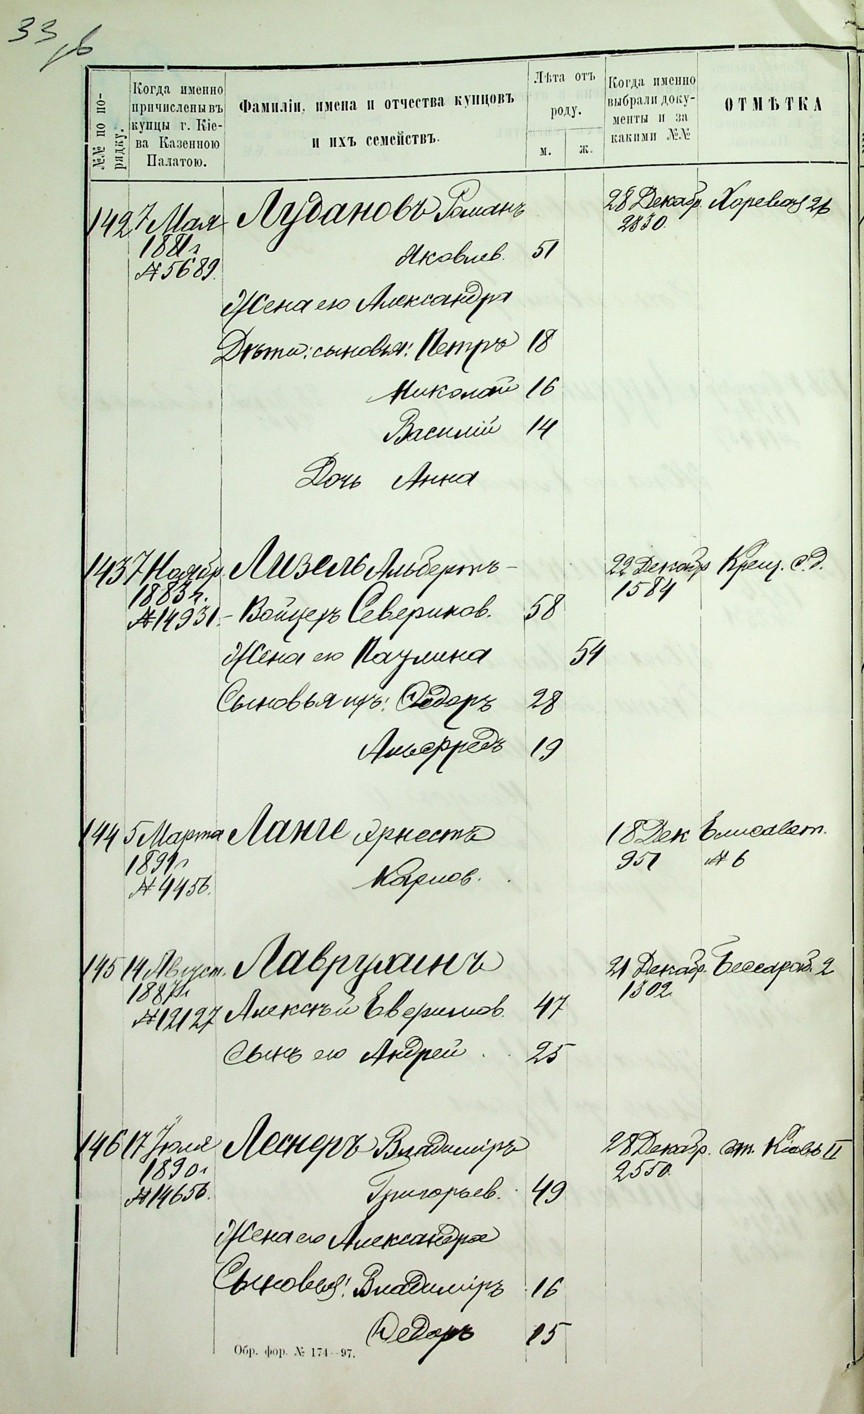 33 об
№№ по по-
рядку.
Когда именно
причислены въ
купцы г. Кіе-
ва Казенною
Палатою.
Фамиліи, имена и отчества купцовъ
и ихъ семействъ.
Лѣта отъ
роду.
м.
ж.
Когда именно
выбрали доку-
менты и за
какими №№
ОТМѢТКА
142 7 Мая Лудановъ Романъ 28 Декабр. 26
1881 г. 2830
№ 5689. Яковлев. 51
Жена его Александра
Дѣти: сыновья: Петръ 18
Николай 16
Василій 14
Дочь Анна
143 7 Ноябр. Лизель Альбертъ- 22 Декабр Крещ. с. д.
1883 г. 1584
№ 14931. -Войцехъ Северинов. 58
Жена его Паулина 54
Сыновья ихъ: Ѳедоръ 28
Альфредъ 19
144 5 Марта Ланге Эрнестъ 18 Дек Елисавет.
1891 г 951 № 6
№ 4456. Карлов.
145 14 Август. Лаврухинъ 21 Декабр. Бессараб. 2
1887 г. 1302
№ 12127 Алексѣй Ефримов. 47
Сынъ его Андрей 25
146 17 Іюля Леснеръ Владиміръ 28 Декабр. ст. Кіевъ II
1890 г 2550.
№ 14656. Григорьев. 49
Жена его Александра
Сыновья: Владиміръ 16
Ѳедоръ 15
Обр. фор. № 174—97.